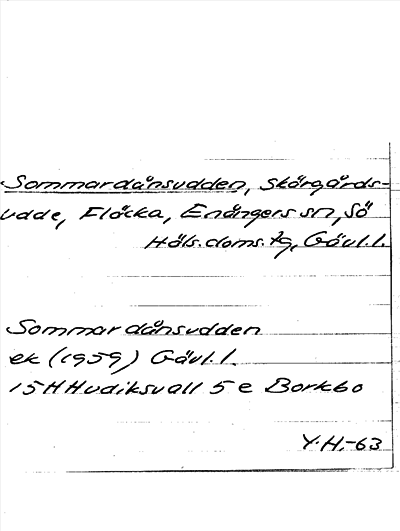 Sommardånsudden, skärgårds-
udde, Flåcka, Enångers sn, Sö
Häls. doms. tg, Gävl.l.
Sommardånsudden
ek (1959) Gävl.l.
15H Hudiksvall 5 e Borkbo
Y.H.-63